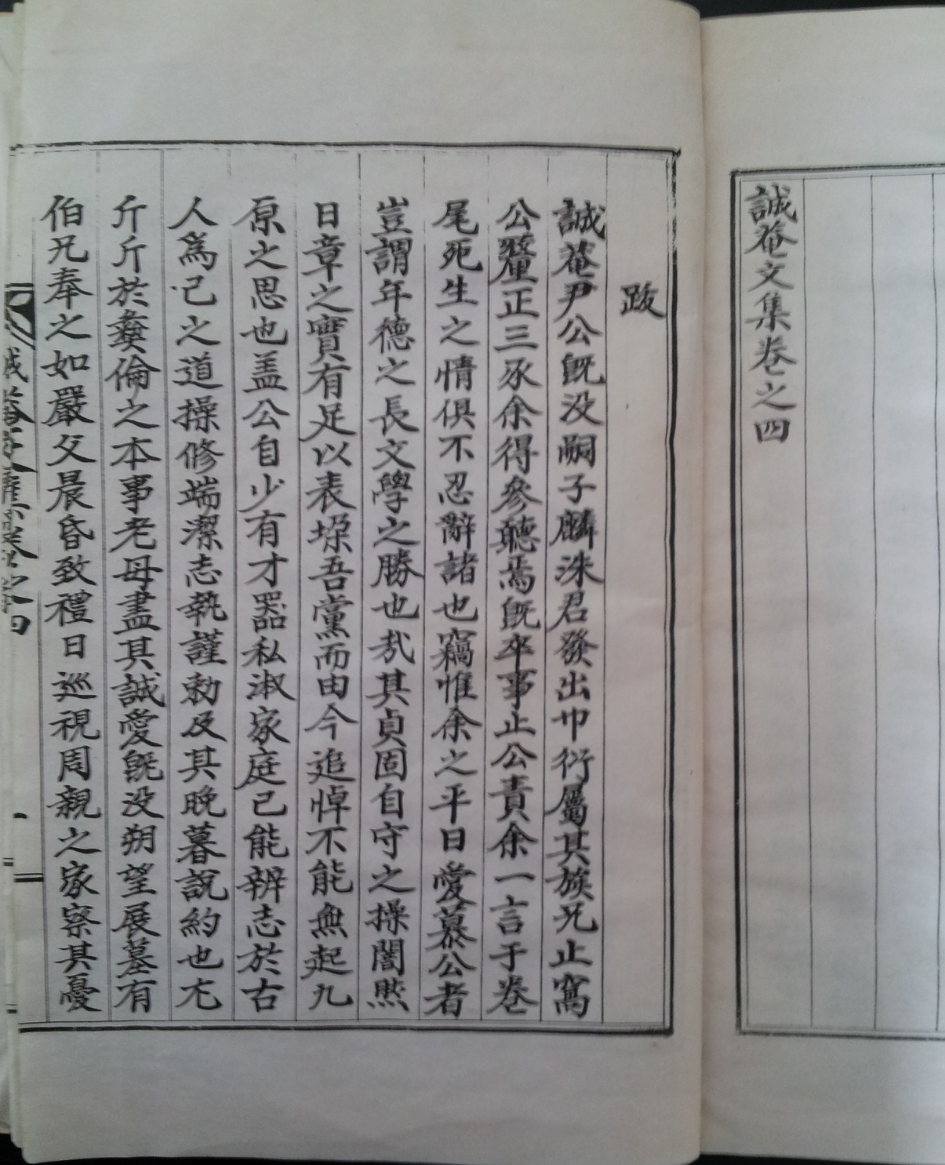 誠菴文集卷之四
跋
誠菴尹公旣没嗣子麟洙君發出巾衍屬其族兄止窩
公釐正三豕余得參聽焉旣卒事止公責余一言于卷
尾死生之情俱不忍辭諸也竊惟余之平日愛慕公者
豈謂年德之長文學之勝也㢤其貞固自守之操闇然
日章之實有足以表垜吾黨而由今追悼不能無起九
原之思也盖公自少有才器私淑家庭已能辨志於古
人爲己之道操修端潔志執謹勅及其晚暮說約也尤
斤斤於彜倫之本事老母盡其誠愛旣没朔望展墓有
伯兄奉之如嚴父晨昏致禮日巡視周親之家察其憂